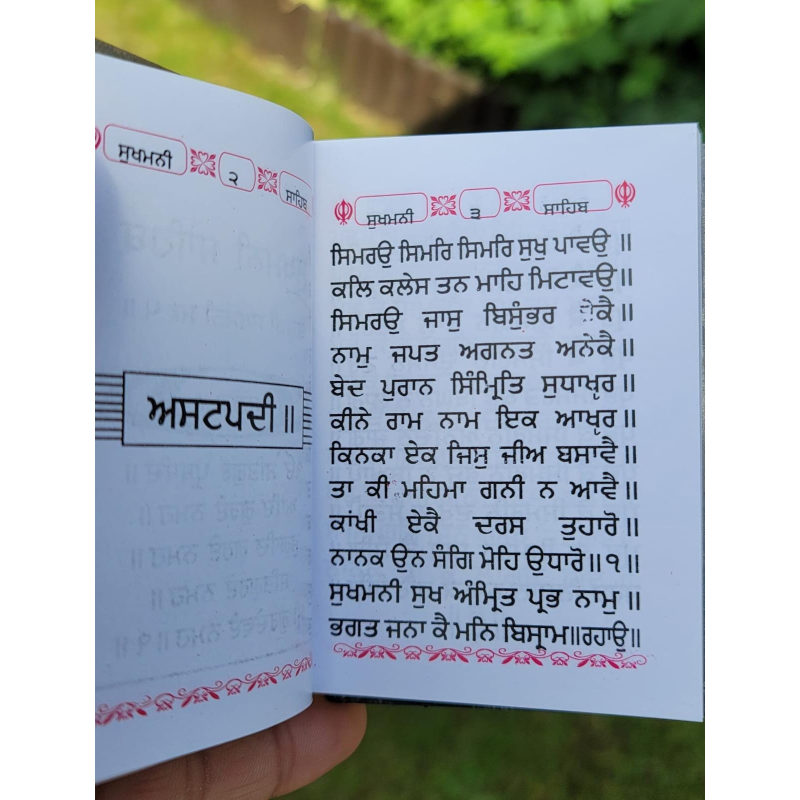 ਸੁਖਮਨੀ ੨ ਸਾਹਿਬ
ਅਸਟਪਦੀ ॥
ਸੁਖਮਨੀ ੩ ਸਾਹਿਬ
ਸਿਮਰਉ ਸਿਮਰਿ ਸਿਮਰਿ ਸੁਖੁ ਪਾਵਉ ॥
ਕਲਿ ਕਲੇਸ ਤਨ ਮਾਹਿ ਮਿਟਾਵਉ ॥
ਸਿਮਰਉ ਜਾਸੁ ਬਿਸੁੰਭਰ ੇਕੈ ॥
ਨਾਮੁ ਜਪਤ ਅਗਨਤ ਅਨੇਕੈ ॥
ਬੇਦ ਪੁਰਾਨ ਸਿੰਮ੍ਰਿਤਿ ਸੁਧਾਖ੍ਯਰ ॥
ਕੀਨੇ ਰਾਮ ਨਾਮ ਇਕ ਆਖ੍ਯਰ ॥
ਕਿਨਕਾ ਏਕ ਜਿਸੁ ਜੀਅ ਬਸਾਵੈ ॥
ਤਾ ਕੀ ਮਹਿਮਾ ਗਨੀ ਨ ਆਵੈ ॥
ਕਾਂਖੀ ਏਕੈ ਦਰਸ ਤੁਹਾਰੋ ॥
ਨਾਨਕ ਉਨ ਸੰਗਿ ਮੋਹਿ ਉਧਾਰੋ ॥੧॥
ਸੁਖਮਨੀ ਸੁਖ ਅੰਮ੍ਰਿਤ ਪ੍ਰਭ ਨਾਮੁ ॥
ਭਗਤ ਜਨਾ ਕੈ ਮਨਿ ਬਿਸ੍ਰਾਮ॥ਰਹਾਉ॥